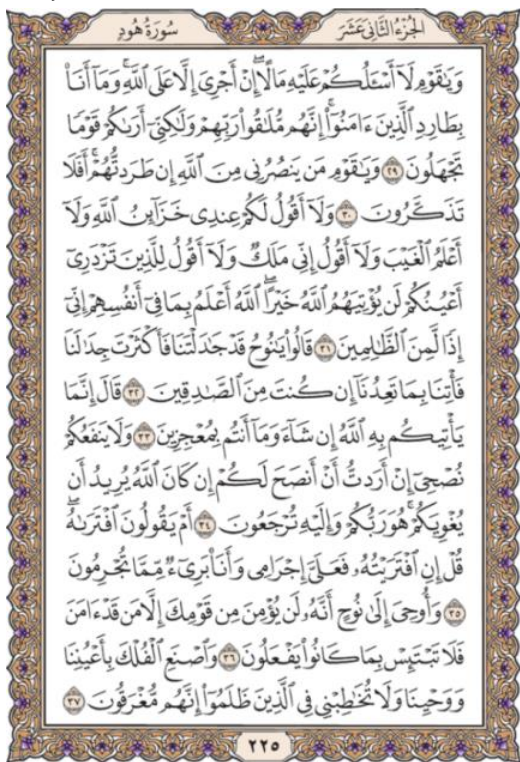 الجُزْءُ الثَّانِي عَشَرَ سُورَةُ هُودٍ
وَيَٰقَوْمِ لَآ أَسْـَٔلُكُمْ عَلَيْهِ مَالًاۖ إِنْ أَجْرِىَ إِلَّا عَلَى ٱللَّهِۚ وَمَآ أَنَا۠
بِطَارِدِ ٱلَّذِينَ ءَامَنُوٓا۟ۚ إِنَّهُم مُّلَٰقُوا۟ رَبِّهِمْ وَلَٰكِنِّىٓ أَرَىٰكُمْ قَوْمًا
تَجْهَلُونَ ٢٩ وَيَٰقَوْمِ مَن يَنصُرُنِى مِنَ ٱللَّهِ إِن طَرَدتُّهُمْۚ أَفَلَا
تَذَكَّرُونَ ٣٠ وَلَآ أَقُولُ لَكُمْ عِندِى خَزَآئِنُ ٱللَّهِ وَلَآ
أَعْلَمُ ٱلْغَيْبَ وَلَآ أَقُولُ إِنِّى مَلَكٌ وَلَآ أَقُولُ لِلَّذِينَ تَزْدَرِىٓ
أَعْيُنُكُمْ لَن يُؤْتِيَهُمُ ٱللَّهُ خَيْرًاۖ ٱللَّهُ أَعْلَمُ بِمَا فِىٓ أَنفُسِهِمْ إِنِّىٓ
إِذًا لَّمِنَ ٱلظَّٰلِمِينَ ٣١ قَالُوا۟ يَٰنُوحُ قَدْ جَٰدَلْتَنَا فَأَكْثَرْتَ جِدَٰلَنَا
فَأْتِنَا بِمَا تَعِدُنَآ إِن كُنتَ مِنَ ٱلصَّٰدِقِينَ ٣٢ قَالَ إِنَّمَا
يَأْتِيكُم بِهِ ٱللَّهُ إِن شَآءَ وَمَآ أَنتُم بِمُعْجِزِينَ ٣٣ وَلَا يَنفَعُكُمْ
نُصْحِىٓ إِنْ أَرَدتُّ أَنْ أَنصَحَ لَكُمْ إِن كَانَ ٱللَّهُ يُرِيدُ أَن
يُغْوِيَكُمْۚ هُوَ رَبُّكُمْ وَإِلَيْهِ تُرْجَعُونَ ٣٤ أَمْ يَقُولُونَ ٱفْتَرَىٰهُۖ
قُلْ إِنِ ٱفْتَرَيْتُهُۥ فَعَلَىَّ إِجْرَامِى وَأَنَا۠ بَرِىٓءٌ مِّمَّا تُجْرِمُونَ
٣٥ وَأُوحِىَ إِلَىٰ نُوحٍ أَنَّهُۥ لَن يُؤْمِنَ مِن قَوْمِكَ إِلَّا مَن قَدْ ءَامَنَ
فَلَا تَبْتَئِسْ بِمَا كَانُوا۟ يَفْعَلُونَ ٣٦ وَٱصْنَعِ ٱلْفُلْكَ بِأَعْيُنِنَا
وَوَحْيِنَا وَلَا تُخَٰطِبْنِى فِى ٱلَّذِينَ ظَلَمُوٓا۟ إِنَّهُم مُّغْرَقُونَ ٣٧
٢٢٥